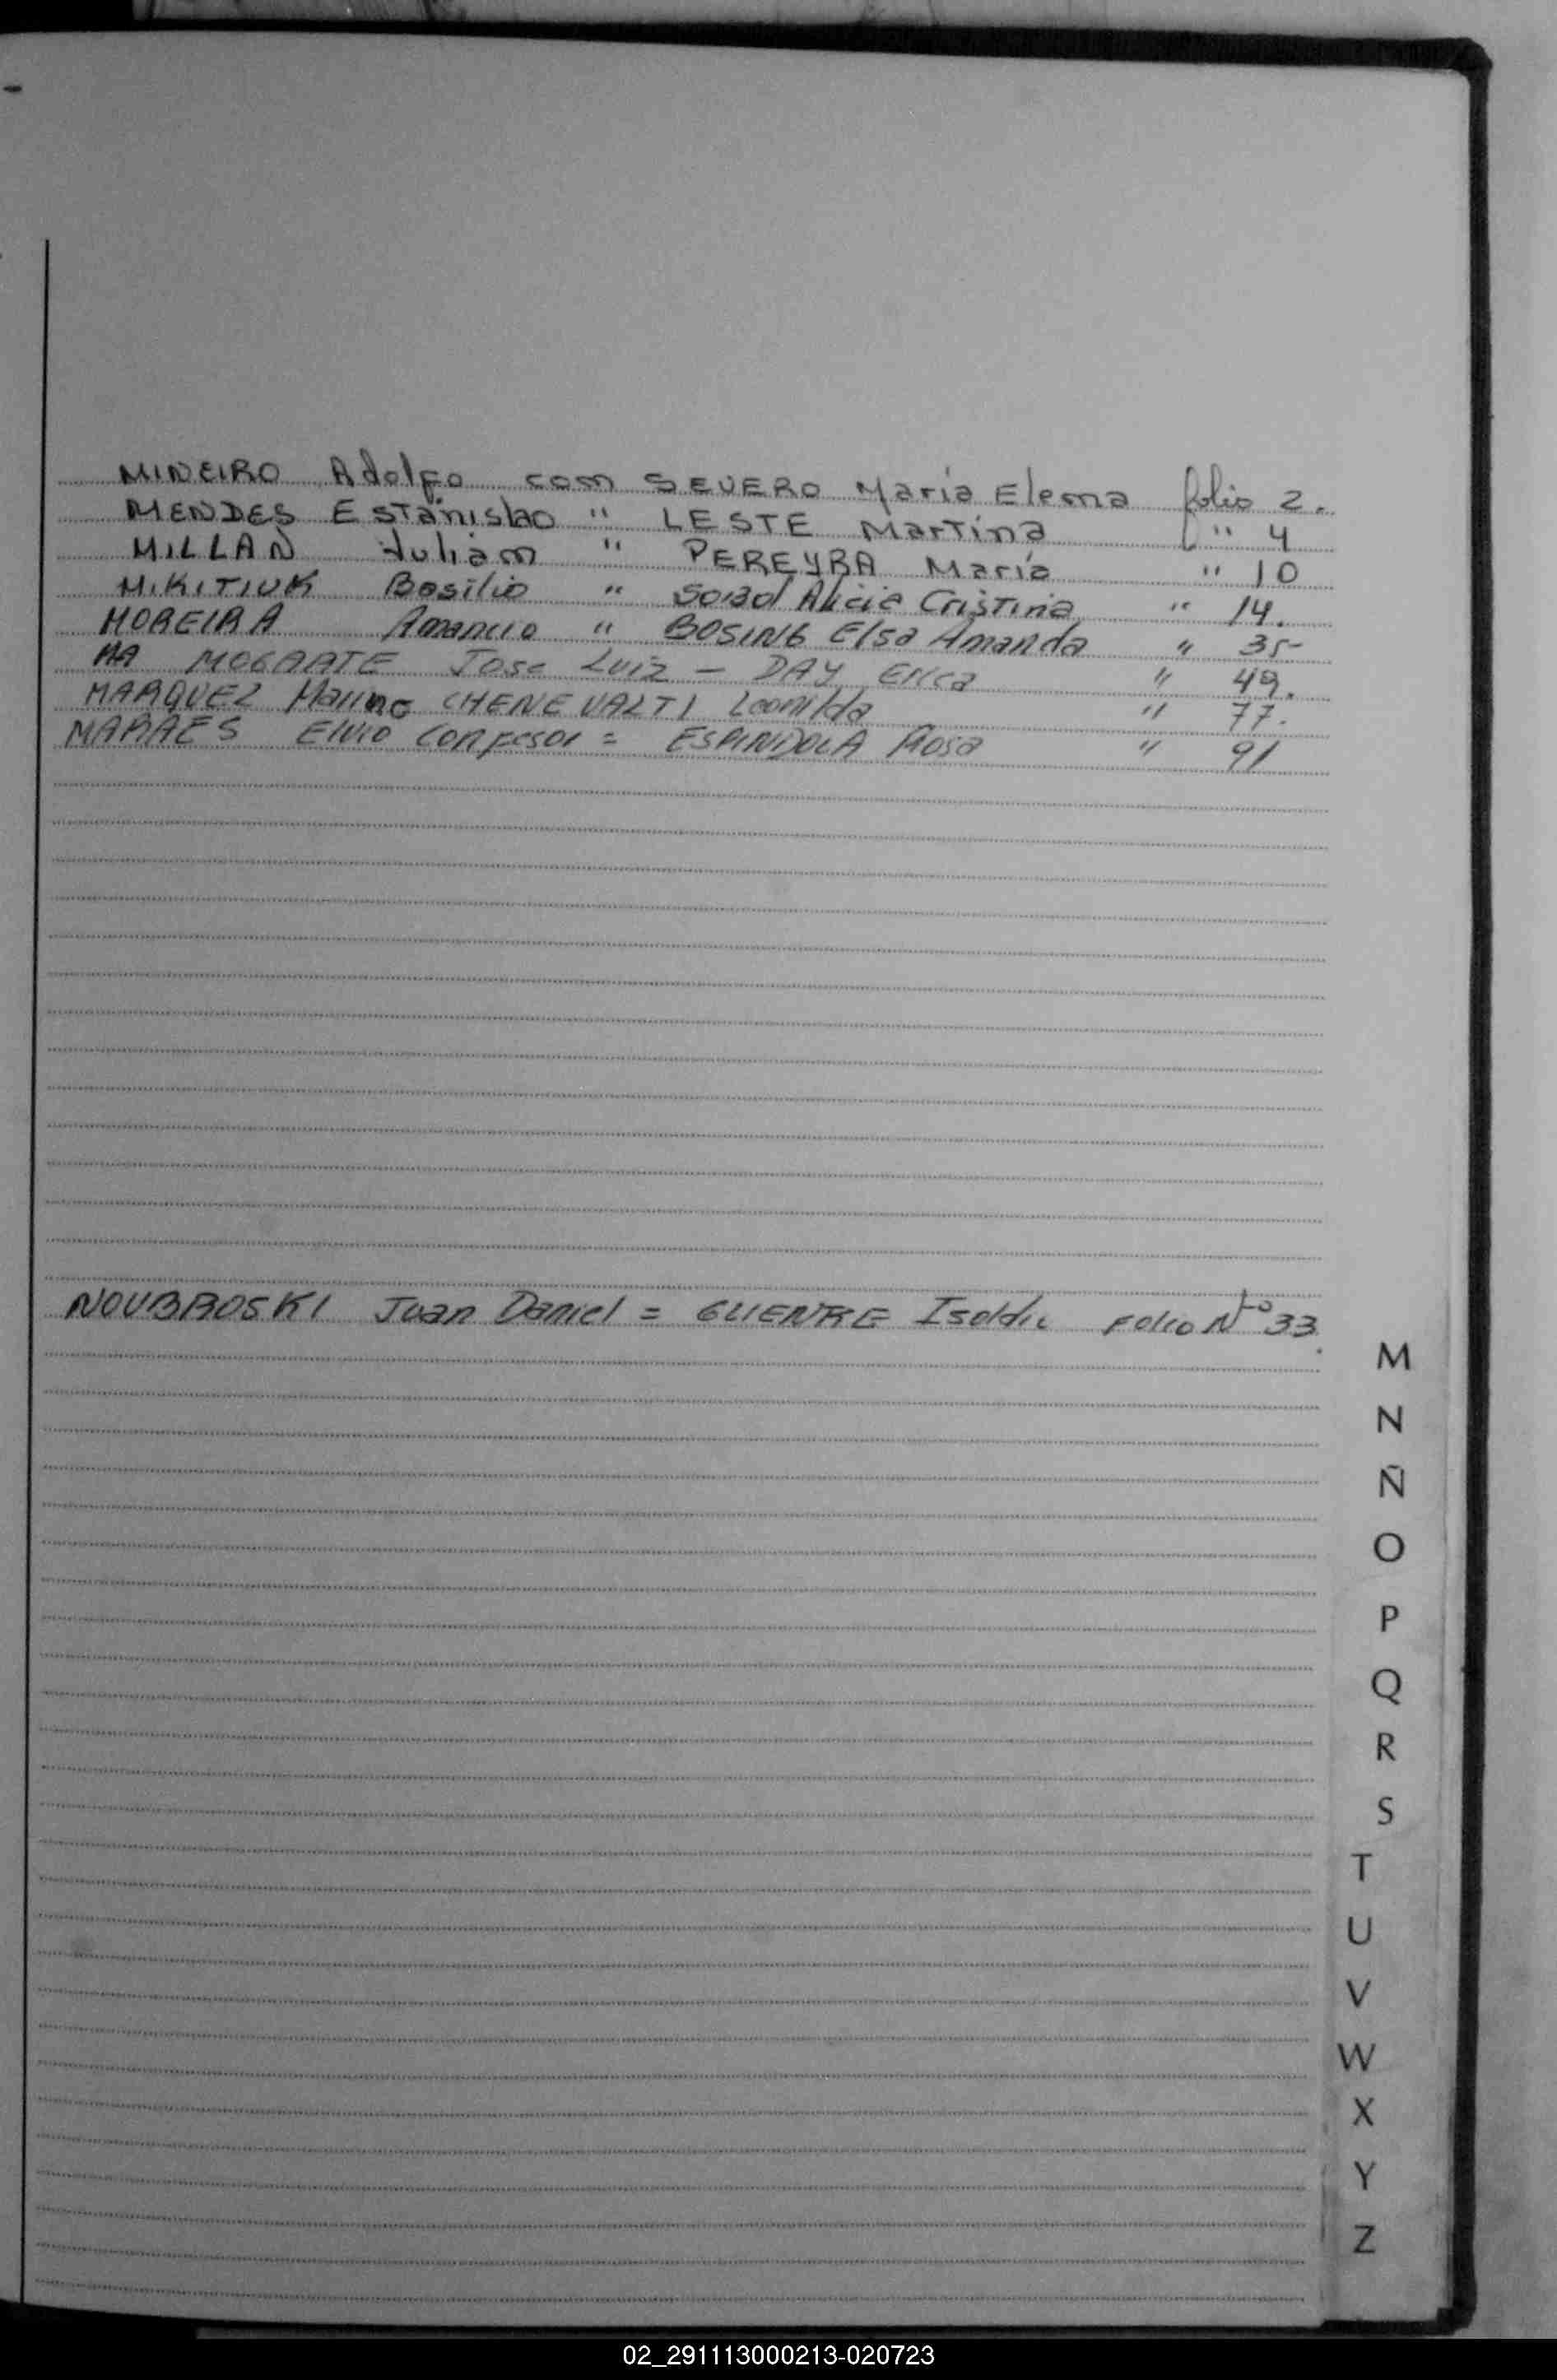 MINEIRO Adolfo com SEVERO María Elema folio 2.
MENDES Estanislao " LESTE Martina " 4
MILLAN Juliam " PEREYRA María " 10
MIKITIUK Basilio " Alicia Cristina " 14.
MOREIRA Amancio " BOSING Elsa Amanda " 35
MA MOGARTE Jose Luiz - DAY Erica " 49.
MARQUEZ Marino CHENEVALTI Leonilda " 77.
MARAES Elvio Confesor = ESPINDOLA Rosa " 91
NOUBROSKI Juan Daniel = GLIENTRE Folio Nº 33.
M
N
Ñ
O
P
Q
R
S
T
U
V
W
X
Y
Z
02_291113000213-020723